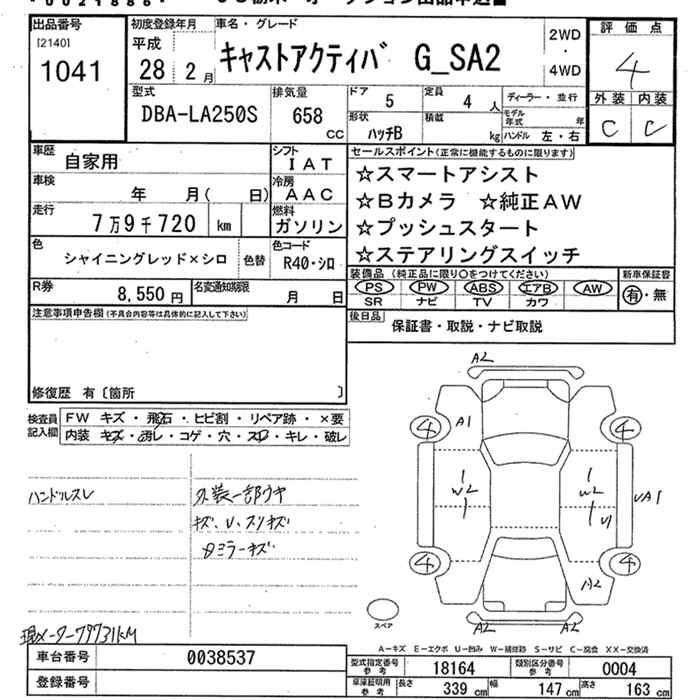 出品番号
[2140]
1041
初度登録年月
平成
28 2月
車名・グレード
キャストアクティバ G_SA2
2WD
・
4WD
評価点
4
外装 内装
C C
型式
DBA-LA250S
排気量
658
CC
ドア
5
定員
4 人
形状
ハッチB
積載
kg
ディーラー・並行
モデル年式 年
ハンドル 左・右
車歴
自家用
シフト
IAT
車検
年 月( 日)
冷房
AAC
走行
7万9千720 km
燃料
ガソリン
色
シャイニングレッド×シロ
色替
色コード
R40・シロ
R券
8,550 円
名変通知期限
月 日
セールスポイント(正常に機能するものに限ります)
☆スマートアシスト
☆Bカメラ ☆純正AW
☆プッシュスタート
☆ステアリングスイッチ
装備品 (純正品に限り○をつけてください)
PS PW ABS エアB AW
SR ナビ TV カワ
新車保証書
有・無
後日品
保証書・取説・ナビ取説
注意事項申告欄(不具合内容等は具体的に記入して下さい)
修復歴 有〔箇所 〕
検査員
記入欄
FW キズ・飛石・ヒビ割・リペア跡・×要
内装 キズ・汚レ・コゲ・穴・スレ・キレ・破レ
ハンドルスレ
外装一部ウキ
キズ、U、スリキズ
日ミラーキズ
現メーター79731KM
A2
A1
4 4
W2 W2
U1
UA1
4 4
A2
A2 A2
スペア
A-キズ E-エクボ U-凹み W-補修跡 S-サビ C-腐食 XX-交換済
車台番号
0038537
登録番号
型式指定番号
参考
18164
類別区分番号
参考
0004
車庫証明用
参考
長さ 339 cm
幅 147 cm
高さ 163 cm